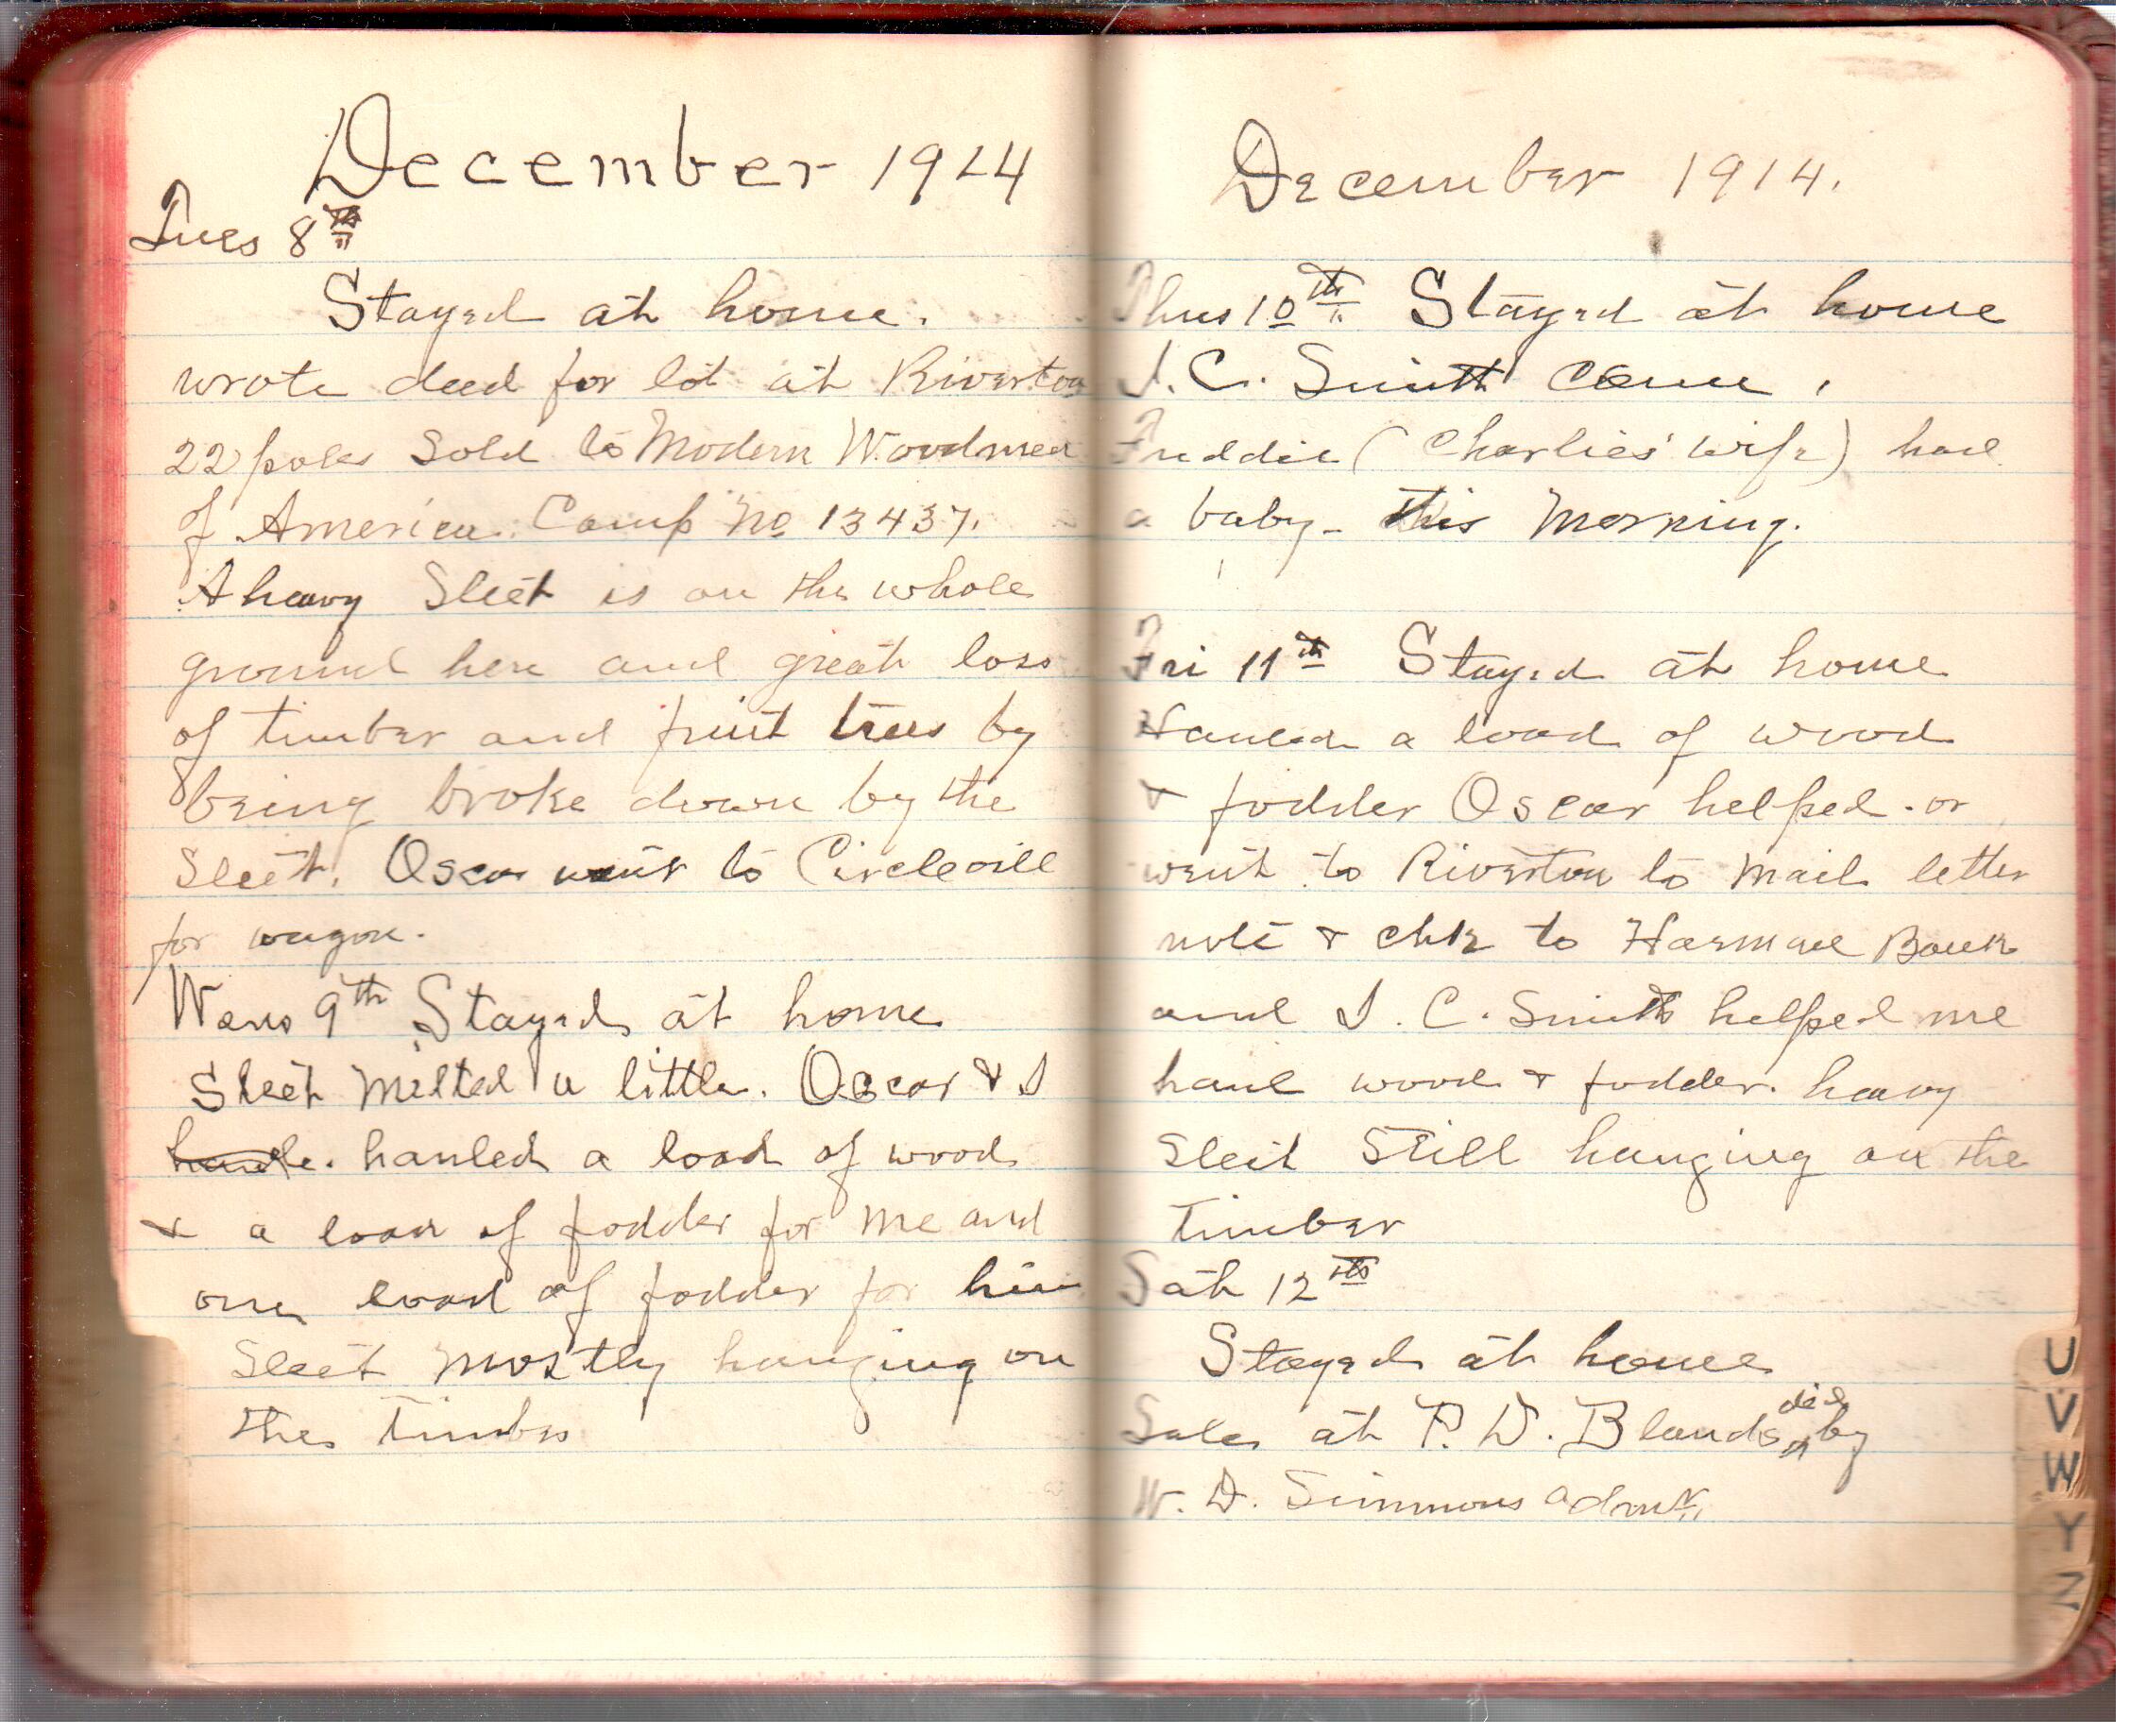 December 1914
Tues 8th
Stayed at home.
wrote deed for lot at Riverton
22 poles Sold to Modern Woodmen
of America. Camp No 13437.
A heavy Sleet is on the whole
ground here and great loss
of timber and fruit trees by
being broke down by the
Sleet. Oscar went to Circlevill
for wagon.
9th Stayed at home
Sleet Melted a little. Oscar & I
hauled a load of wood
& a load of fodder for me and
one load of fodder for him
Sleet Mostly hanging on
the Timber
December 1914.
Thus 10th Stayed at home
J. C. Smith came.
(Charlies' wife) had
a baby - this Morning.
Fri 11th Stayed at home
Hauled a load of wood
& fodder Oscar helped. or
went to Riverton to Mail letter
note & chk to Harman Bank
and J. C. Smith helped me
haul wood & fodder. heavy
Sleet Still hanging on the
Timber
Sat 12th
Stayed at home
Sale at P. D. Blands by
W. D. Simmons admr.
U
V
W
Y
Z